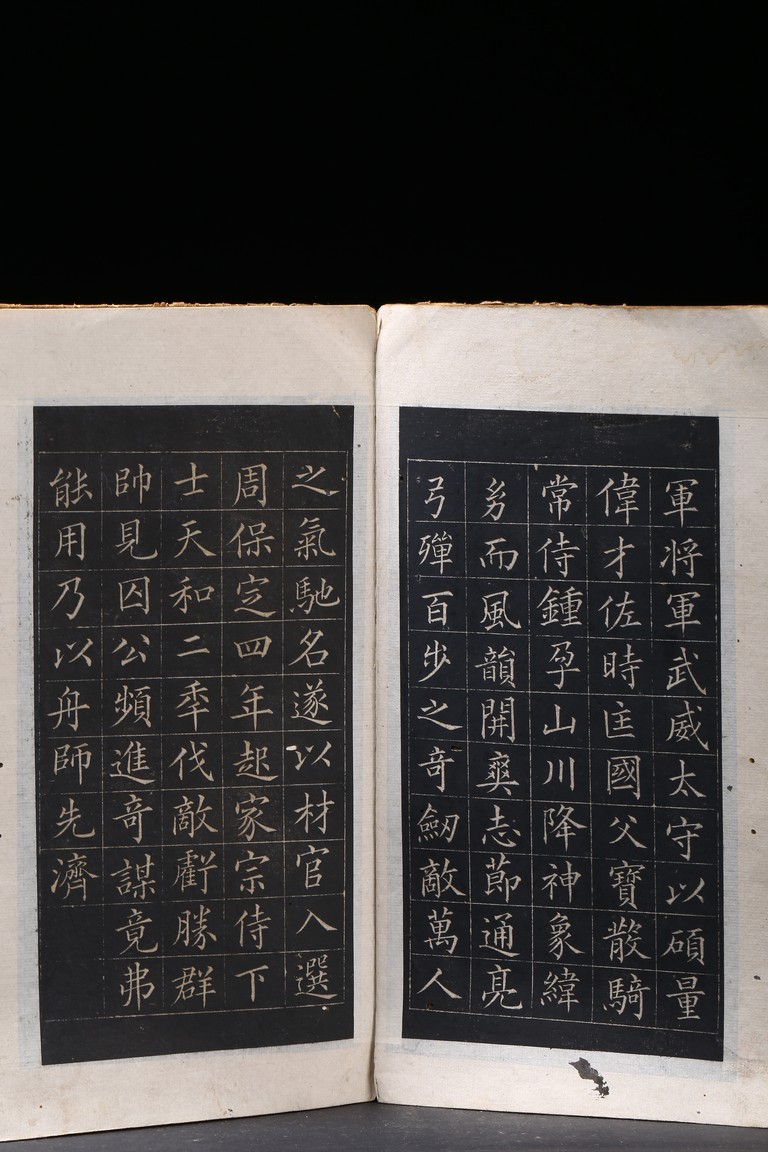 軍将軍武威太守以碩量
偉才佐時匡國父寳散騎
常侍鍾孕山川降神象緯
㓜而風韻開爽志節通亮
弓殫百步之奇劒敵萬人
之氣馳名遂以材官入選
周保定四年起家宗侍下
士天和二秊伐敵虧勝群
帥見囚公頻進奇謀竟弗
能用乃以舟師先濟